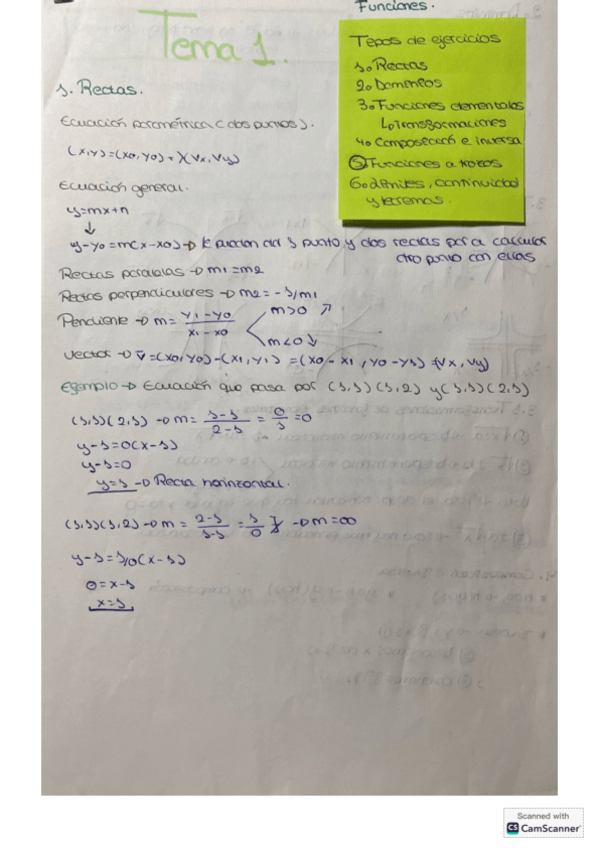 Funciones.
Tema 1.
Tipos de ejercicios
1. Rectas
2. Dominios
3. Funciones elementales
↳ Transformaciones
4. Composición e inversa
5. Funciones a trozos
6. Límites, continuidad
y extremos.
1. Rectas.
Ecuación paramétrica (dos puntos).
(x,y)=(x0,y0)+λ(vx,vy)
Ecuación general.
y=mx+n
↓
y-y0=m(x-x0) → punto y dos rectas para calcular
otro punto con ellas
Rectas paralelas → m1=m2
Rectas perpendiculares → m2=-1/m1
Pendiente → m=(y1-y0)/(x1-x0) m>0 ↗
m<0 ↓
Vector → v̄=(x0,y0)-(x1,y1)=(x0-x1,y0-y1)=(vx,vy)
Ejemplo → Ecuación que pasa por (1,1)(1,2) y (1,1)(2,1)
(1,1)(2,1) → m=(1-1)/(2-1)=0/1=0
y-1=0(x-1)
y-1=0
y=1 → Recta horizontal.
(1,1)(1,2) → m=(2-1)/(1-1)=1/0 ∄ → m=∞
y-1=1/0(x-1)
0=x-1
x=1
Scanned with
CS CamScanner